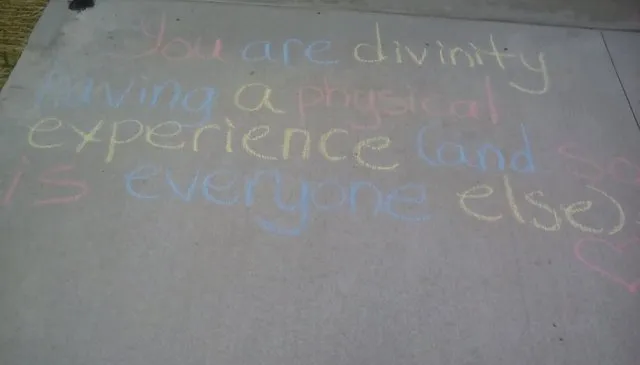 You are divinity
having a physical
experience (and so
is everyone else)